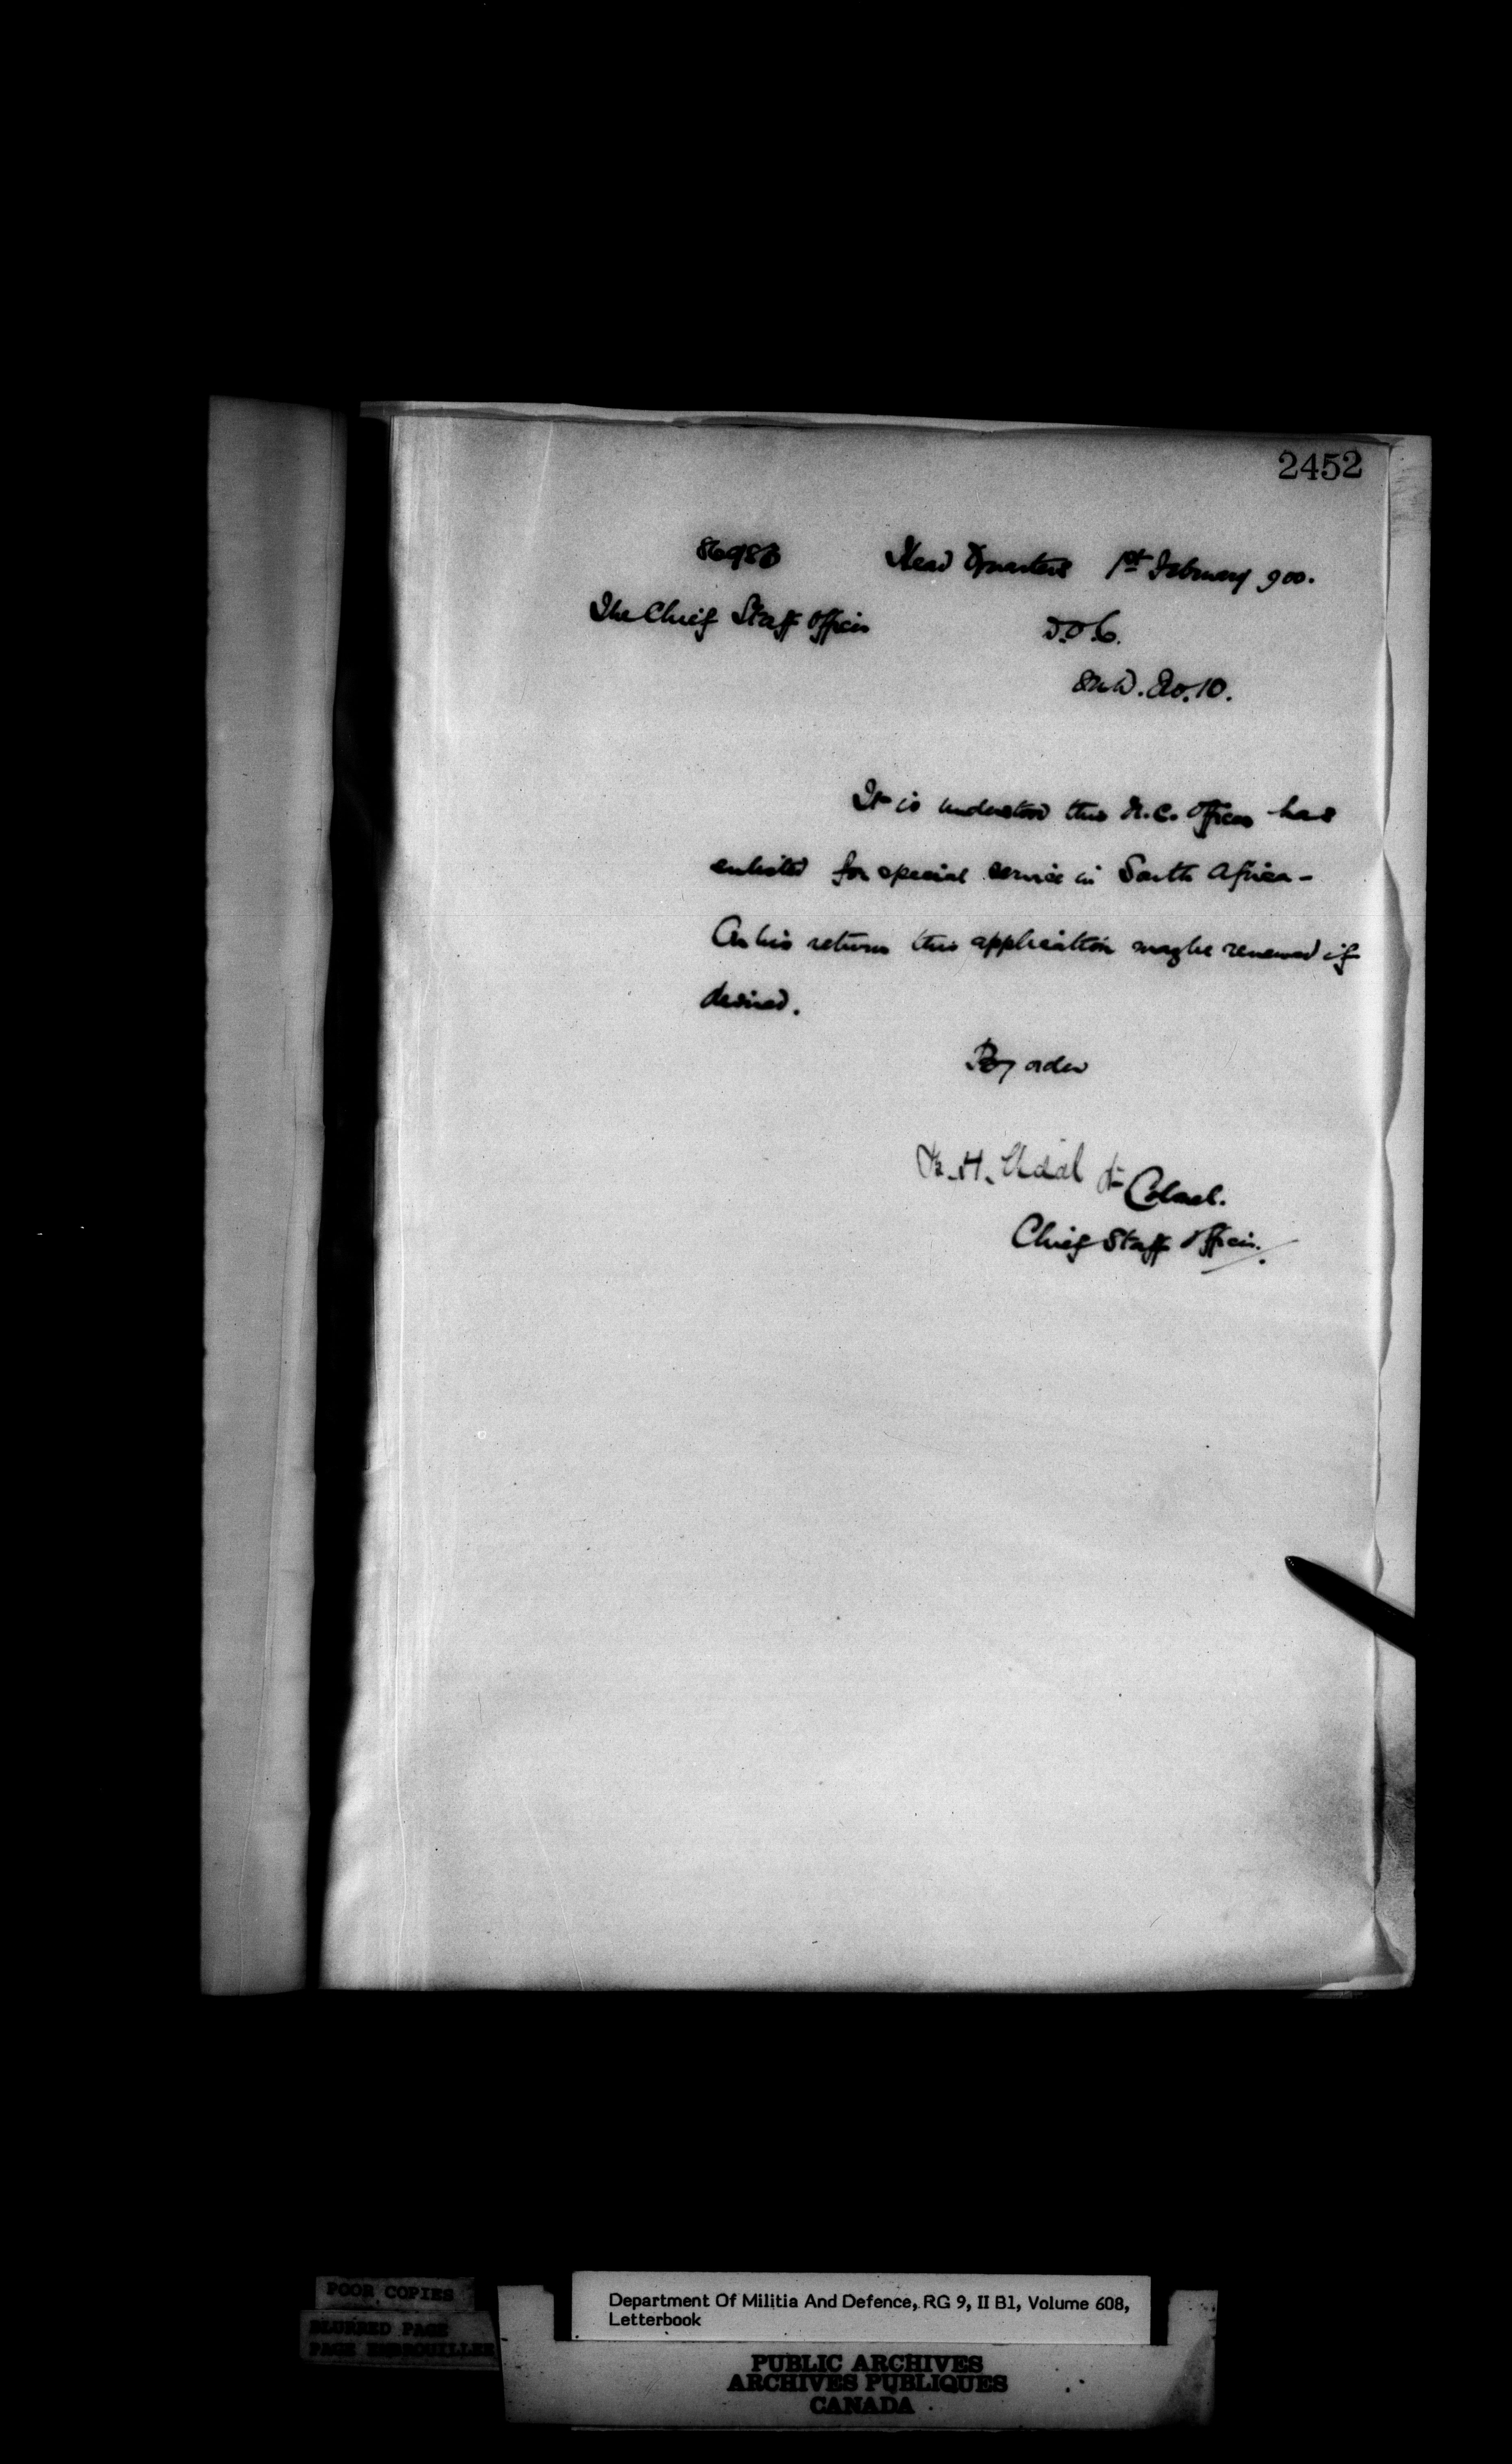 2452
86983 Head Quarters 1st February 900.
The Chief Staff Officer D.O.C.
M.D. No. 10.
It is understood this N.C. Officer has
enlisted for special service in South Africa -
On his return this application may be renewed if
desired.
By order
B. H. Vidal Lt Colonel.
Chief Staff Officer.
POOR COPIES
BLURRED PAGE
PAGE EMBROUILLEE
Department Of Militia And Defence, RG 9, II B1, Volume 608,
Letterbook
PUBLIC ARCHIVES
ARCHIVES PUBLIQUES
CANADA